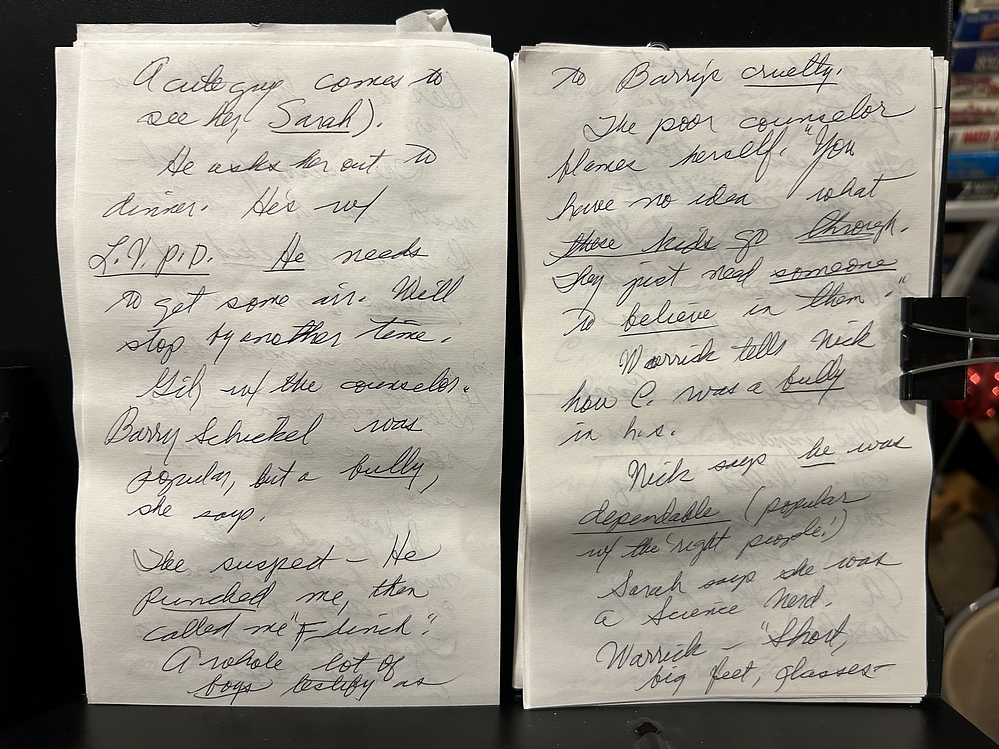 A cute guy comes to
see her, Sarah).
He asks her out to
dinner. He's w/
L.V.P.D. He needs
to get some air. Will
stop by another time.
Gil, w/ the counselor.
Barry Schickel was
popular, but a bully,
she says.
The suspect - He
punched me, then
called me "Flinch".
A whole lot of
boys testify as
to Barry's cruelty.
The poor counselor
blames herself. "You
have no idea what
those kids go through.
They just need someone
to believe in them."
Warrick tells Nick
how C. was a bully
in h.s.
Nick says he was
dependable (popular
w/ the right people!)
Sarah says she was
a Science Nerd.
Warrick - "Short,
big feet, glasses-